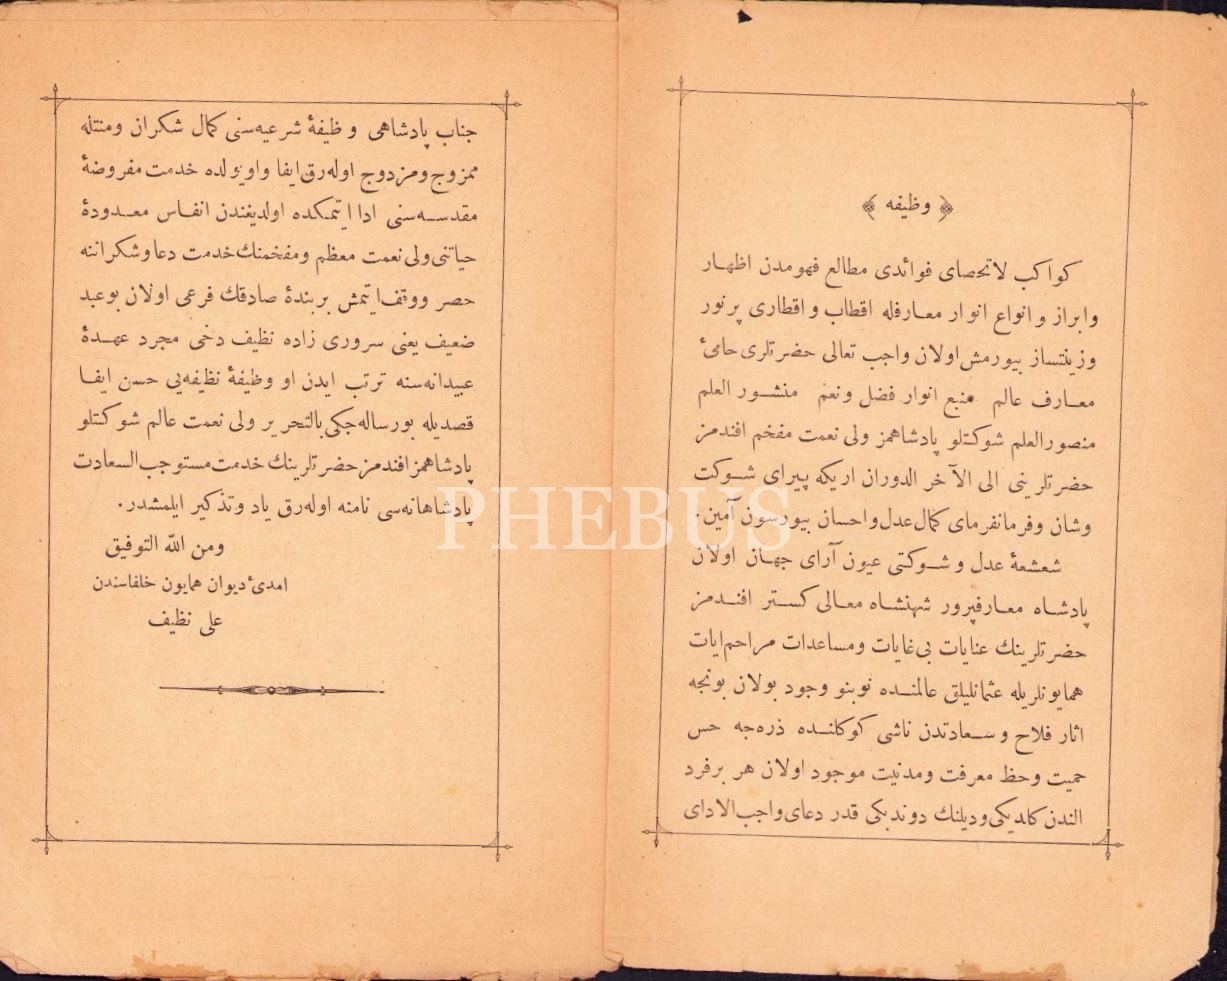 ﴿ وظیفه ﴾
كواكب لاتحصای فوائدی مطالع فهومدن اظهار
وابراز و انواع انوار معارفله اقطاب و اقطاری پرنور
وزینتساز بیورمش اولان واجب تعالی حضرتلری حامیٔ
معارف عالم منبع انوار فضل ونعم منشور العلم
منصورالعلم شوكتلو پادشاهمز ولی نعمت مفخم افندمز
حضرتلرینی الی الآخر الدوران اریكه پیرای شوكت
وشان وفرمانفرمای كمال عدل واحسان بیورسون آمین.
شعشعهٔ عدل و شوكتی عیون آرای جهان اولان
پادشاه معارفپرور شهنشاه معالی كستر افندمز
حضرتلرینك عنایات بی غایات ومساعدات مراحم ایات
همایونلریله عثمانلیلق عالمنده نوبنو وجود بولان بونجه
اثار فلاح و سعادتدن ناشی كوكلنده ذره جه حس
حمیت وحظ معرفت ومدنیت موجود اولان هر برفرد
الندن كلدیكی ودیلنك دوندیكی قدر دعای واجب الادای
جناب پادشاهی وظیفهٔ شرعیه سنی كمال شكران ومنتله
ممزوج ومزدوج اوله رق ایفا واویولده خدمت مفروضهٔ
مقدسه سنی ادا ایتمكده اولدیغندن انفاس معدودهٔ
حیاتنی ولی نعمت معظم ومفخمنك خدمت دعا وشكراننه
حصر ووقف ایتمش بر بندهٔ صادقك فرعی اولان بو عبد
ضعیف یعنی سروری زاده نظیف دخی مجرد عهدهٔ
عبیدانه سنه ترتب ایدن او وظیفهٔ نظیفه یی حسن ایفا
قصدیله بورساله جكی بالتحریر ولی نعمت عالم شوكتلو
پادشاهمز افندمز حضرتلرینك خدمت مستوجب السعادت
پادشاهانه سی نامنه اوله رق یاد وتذكیر ایلمشدر.
ومن الله التوفیق
امدیٔ دیوان همایون خلفاسندن
علی نظیف
PHEBUS